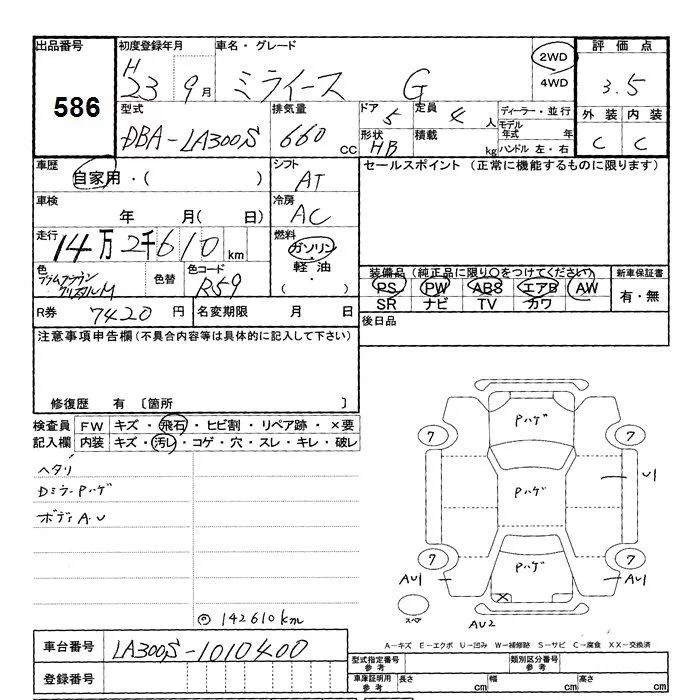 出品番号 初度登録年月 車名・グレード 2WD 4WD 評価点
586 H 23 9月 ミライース G 3.5
型式 排気量 ドア 5 定員 4人 ディーラー・並行 外装 内装
DBA-LA300S 660 CC 形状 HB 積載 kg モデル年式 年 ハンドル 左・右 C C
車歴 自家用・( ) シフト AT セールスポイント (正常に機能するものに限ります)
車検 年 月( 日) 冷房 AC
走行 14万2千610km 燃料 ガソリン・軽油・( )
色 プラムブラウンクリスタルM 色替 色コード R59
装備品(純正品に限り○をつけてください) 新車保証書
PS PW ABS エアB AW 有・無
SR ナビ TV カワ
R券 7420円 名変期限 月 日 後日品
注意事項申告欄(不具合内容等は具体的に記入して下さい)
修復歴 有 〔箇所 〕
検査員 FW キズ・飛石・ヒビ割・リペア跡・×要
記入欄 内装 キズ・汚レ・コゲ・穴・スレ・キレ・破レ
ヘタリ
Dミラーpハゲ
ボディA.U
◎142610km
Pハゲ
7 7
Pハゲ U1
7 7
Pハゲ
AU1 AU1
×
スペア AU2
A-キズ E-エクボ U-凹み W-補修跡 S-サビ C-腐食 XX-交換済
車台番号 LA300S-1010400 型式指定番号 参考 類別区分番号 参考
登録番号 車庫証明用 参考 長さ cm 幅 cm 高さ cm